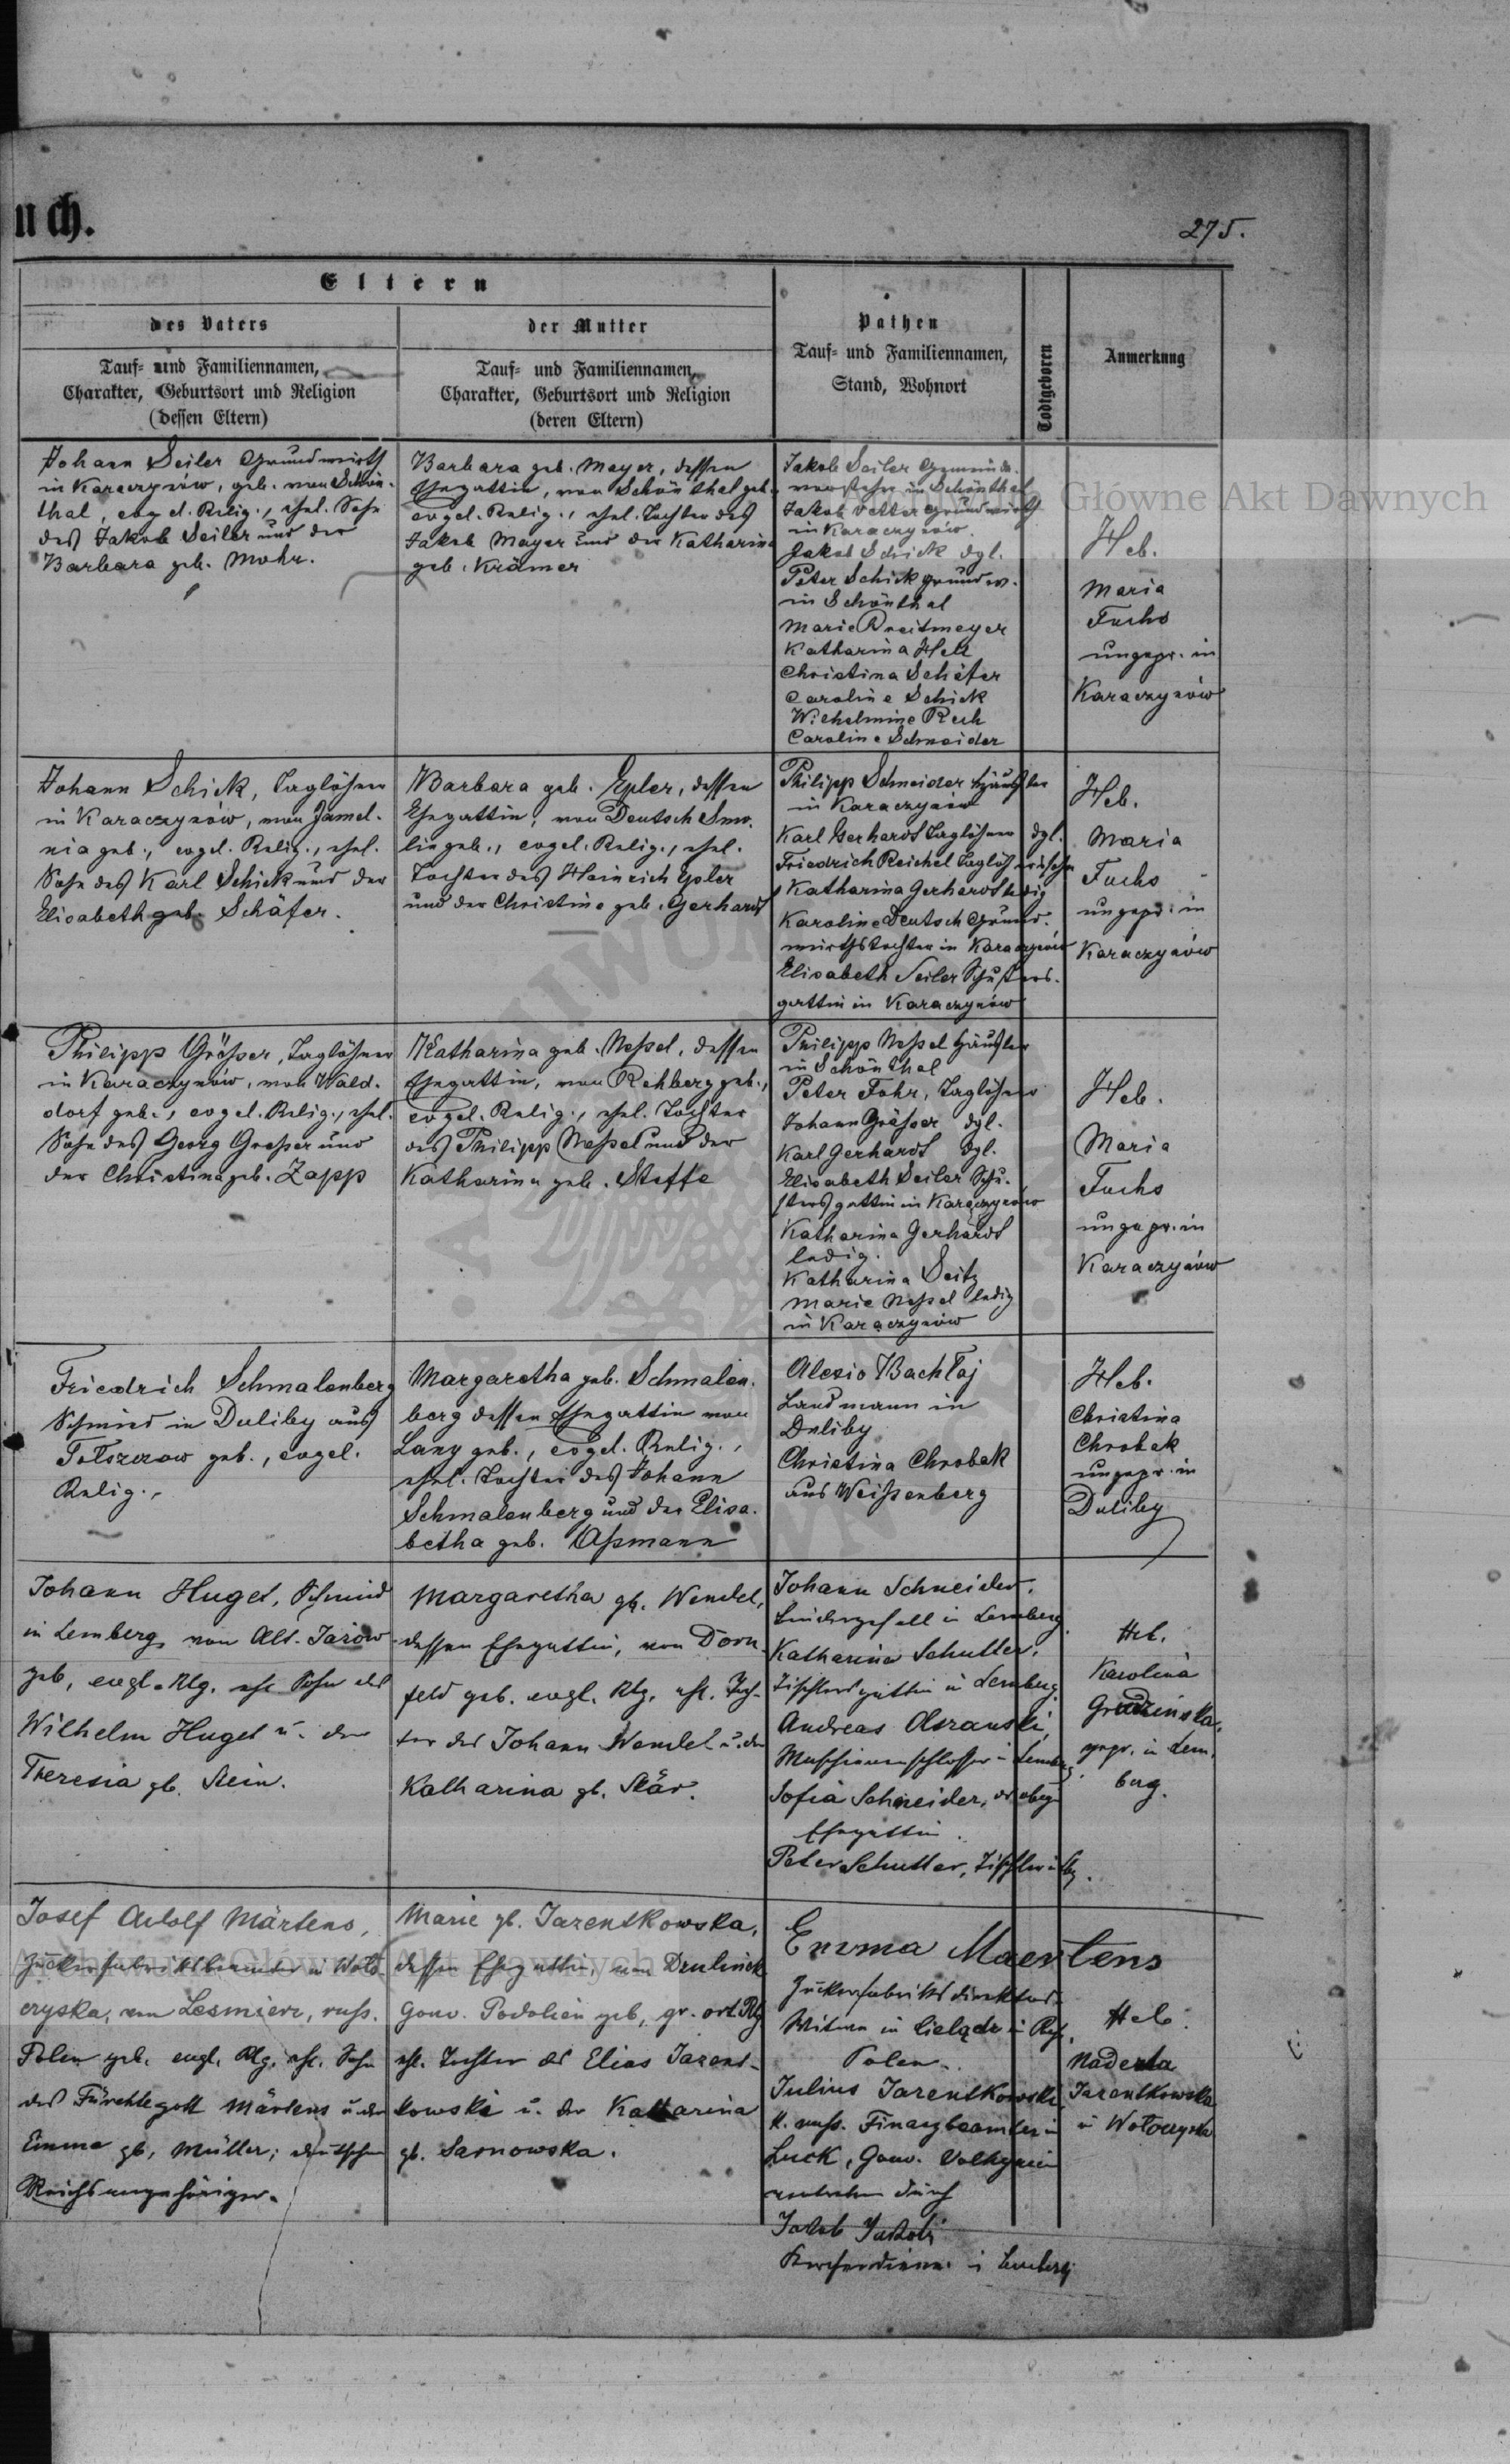 uch.
275.
Eltern
des Vaters
der Mutter
Pathen
Todtgeboren
Anmerkung
Tauf- und Familiennamen,
Charakter, Geburtsort und Religion
(dessen Eltern)
Tauf- und Familiennamen,
Charakter, Geburtsort und Religion
(deren Eltern)
Tauf- und Familiennamen,
Stand, Wohnort
Johann Seiler Grundwirth
in Karaczynów, geb. von Schön-
thal, evgel. Relig., ehel. Sohn
des Jakob Seiler und der
Barbara geb. Mohr.
Barbara geb. Mayer, dessen
Ehegattin, von Schönthal geb.,
evgel. Relig., ehel. Tochter des
Jakob Mayer und der Katharina
geb. Krämer
Jakob Seiler Gemeinde-
vorsteher in Schönthal
Jakob Vetter Grundwirth
in Karaczynów.
Jakob Schick dgl.
Peter Schick Grundw.
in Schönthal
Marie Breitmeyer
Katharina Heu
Christina Schäfer
Caroline Schick
Wilhelmine Rech
Caroline Schneider
Heb.
Maria
Fuchs
ungepr. in
Karaczynów
Johann Schick, Taglöhner
in Karaczynów, von Jamel-
nia geb., evgel. Relig., ehel.
Sohn des Karl Schick und der
Elisabeth geb. Schäfer.
Barbara geb. Epler, dessen
Ehegattin, von Deutsch Smo-
lin geb., evgel. Relig., ehel.
Tochter des Heinrich Epler
und der Christine geb. Gerhardt
Philipp Schneider Häusler
in Karaczynów
Karl Gerhardt Taglöhner dgl.
Friedrich Reichel
Katharina Gerhardt ledig
Karoline Deutsch Grund-
wirthstochter in Karaczynów
Elisabeth Seiler Schusters-
gattin in Karaczynów
Heb.
Maria
Fuchs
ungepr. in
Karaczynów
Philipp Größer, Taglöhner
in Karaczynów, von Wald-
dorf geb., evgel. Relig., ehel.
Sohn des Georg Großer und
der Christina geb. Zapp
Katharina geb. Neßel, dessen
Ehegattin, von Rehberg geb.,
evgel. Relig., ehel. Tochter
des Philipp Neßel und der
Katharina geb. Steffe
Philipp Neßel Häusler
in Schönthal
Peter Fohr, Taglöhner
Johann Größer dgl.
Karl Gerhardt dgl.
Elisabeth Seiler Schu-
stersgattin in Karaczynów
Katharina Gerhardt
ledig.
Katharina Seitz
Marie Neßel ledig
in Karaczynów
Heb.
Maria
Fuchs
ungepr. in
Karaczynów
Friedrich Schmalenberg
Schmied in Duliby aus
geb., evgel.
Relig.,
Margaretha geb. Schmalen-
berg dessen Ehegattin von
Lany geb., evgel. Relig.,
ehel. Tochter des Johann
Schmalenberg und der Elisa-
betha geb. Aßmann
Alexio Bachtaj
Landmann in
Duliby
Christina Chrobak
aus Weißenberg
Heb.
Christina
Chrobak
ungepr. in
Duliby
Johann Hugel, Schmied
in Lemberg, von Alt-Jazow
geb, evgl. Rlg. ehl. Sohn des
Wilhelm Hugel u. der
Theresia gb. Stein.
Margaretha gb. Wendel,
dessen Ehegattin, von Dorn-
feld geb. evgl. Rlg. ehl. Toch-
ter des Johann Wendel u. der
Katharina gb. Stär.
Johann Schneider,
in Lemberg
Katharina Schutter,
Tischlersgattin in Lemberg.
Andreas
Maschinenschlosser in Lemberg
Sofia Schneider, d. obig.
Ehegattin.
Peter Schutter, Tischler
Heb.
Karolina
Grudzinska,
gepr. in Lem-
berg.
Josef Adolf Märtens,
Zuckerfabriksbeamter in Woło-
czyska, von Lesmierz, russ.
Polen geb. evgl. Rlg. ehl. Sohn
des Fürchtegott Märtens u. der
Emma gb. Müller; deutscher
Reichsangehöriger.
Marie gb. Jarentkowska,
dessen Ehegattin, von
Gouv. Podolien geb, gr. ort. Rlg
ehl. Tochter des Elias Jarent-
kowski u. der Katharina
gb. Sarnowska.
Emma Maertens
Zuckerfabriksdirektors-
Witwe in in Russ.
Polen.
Julius Jarentkowski
k. russ. Finanzbeamter in
Luck, Gouv. Volhynien
vertreten durch
Jakob Jakobi
Kirchendiener in Lemberg
Heb.
Jarentkowska
in Wołoczyska
Archiwum Główne Akt Dawnych